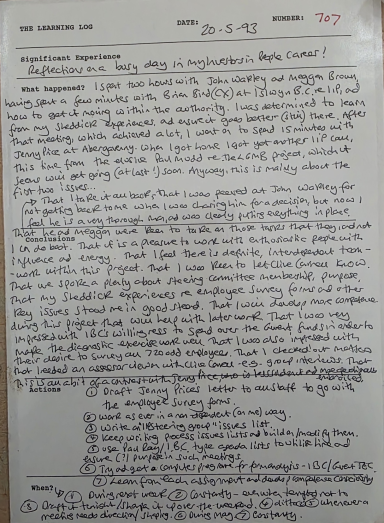 THE LEARNING LOG
DATE: 20-5-93
NUMBER: 707
Significant Experience
Reflections on a busy day in my Investors in People Career!
What happened? I spent two hours with John Warley and Meggan Brown,
having spent a few minutes with Brian Bird (CX) at Islwyn B.C. re IIP, and
how to get it moving within the authority. I was determined to learn
from my Sheddick experiences, and ensure it goes better (still) there. After
that meeting, which achieved a lot, I went on to spend 15 minutes with
Jenny Price at Abergavenny. When I got home I got yet another IIP call,
this time from the elusive Paul Mudd re the GMB project, which it
seems will get going (at last!) soon. Anyway, this is mainly about the
first two issues...
That I take it all back, that I was peeved at John Warley for
not getting back to me when I was chasing him for a decision, but now I
feel he is a very thorough man, and was clearly putting everything in place.
That he and Meggan were keen to take on those tasks that they and not
Conclusions
I can do best. That it is a pleasure to work with enthusiastic people with
influence and energy. That I feel there is definite, interdependent team-
work within this project. That I was keen to let Clive Carroll know
That we spoke a plenty about steering committee membership, purpose,
that my Sheddick experiences re employee survey forms and other
key issues stood me in good stead. That I will develop more competence
during this project that will help with later work. That I was very
impressed with IBC's willingness to spend over the Gwent funds in order to
make the diagnostic exercise work well. That I was also impressed with
their desire to survey all 720 odd employees. That I checked out matters
that needed an assessor down with Clive Carroll e.g. group interviews. That
this is all a bit of a contrast with Jenny Price
Actions
① Draft Jenny Price's letter to all staff to go with
the employee survey forms.
② Work as ever in a non dependent (on me) way.
③ Write all steering group "issues" list.
④ Keep writing process issues lists and build on/modify them.
⑤ Use Paul Ray/IBC type agenda lists to
ensure I'll purpose in such meetings.
⑥ Try and get a computer programme for form analysis - IBC/Gwent TEC.
⑦ Learn from each assignment and develop competence consciously
When?
① During next week ② Constantly - even when tempted not to
③ Draft it tonight/sharpen it up over the weekend. ④ ditto ⑤ whenever a
meeting needs direction/shaping. ⑥ During May ⑦ Constantly.